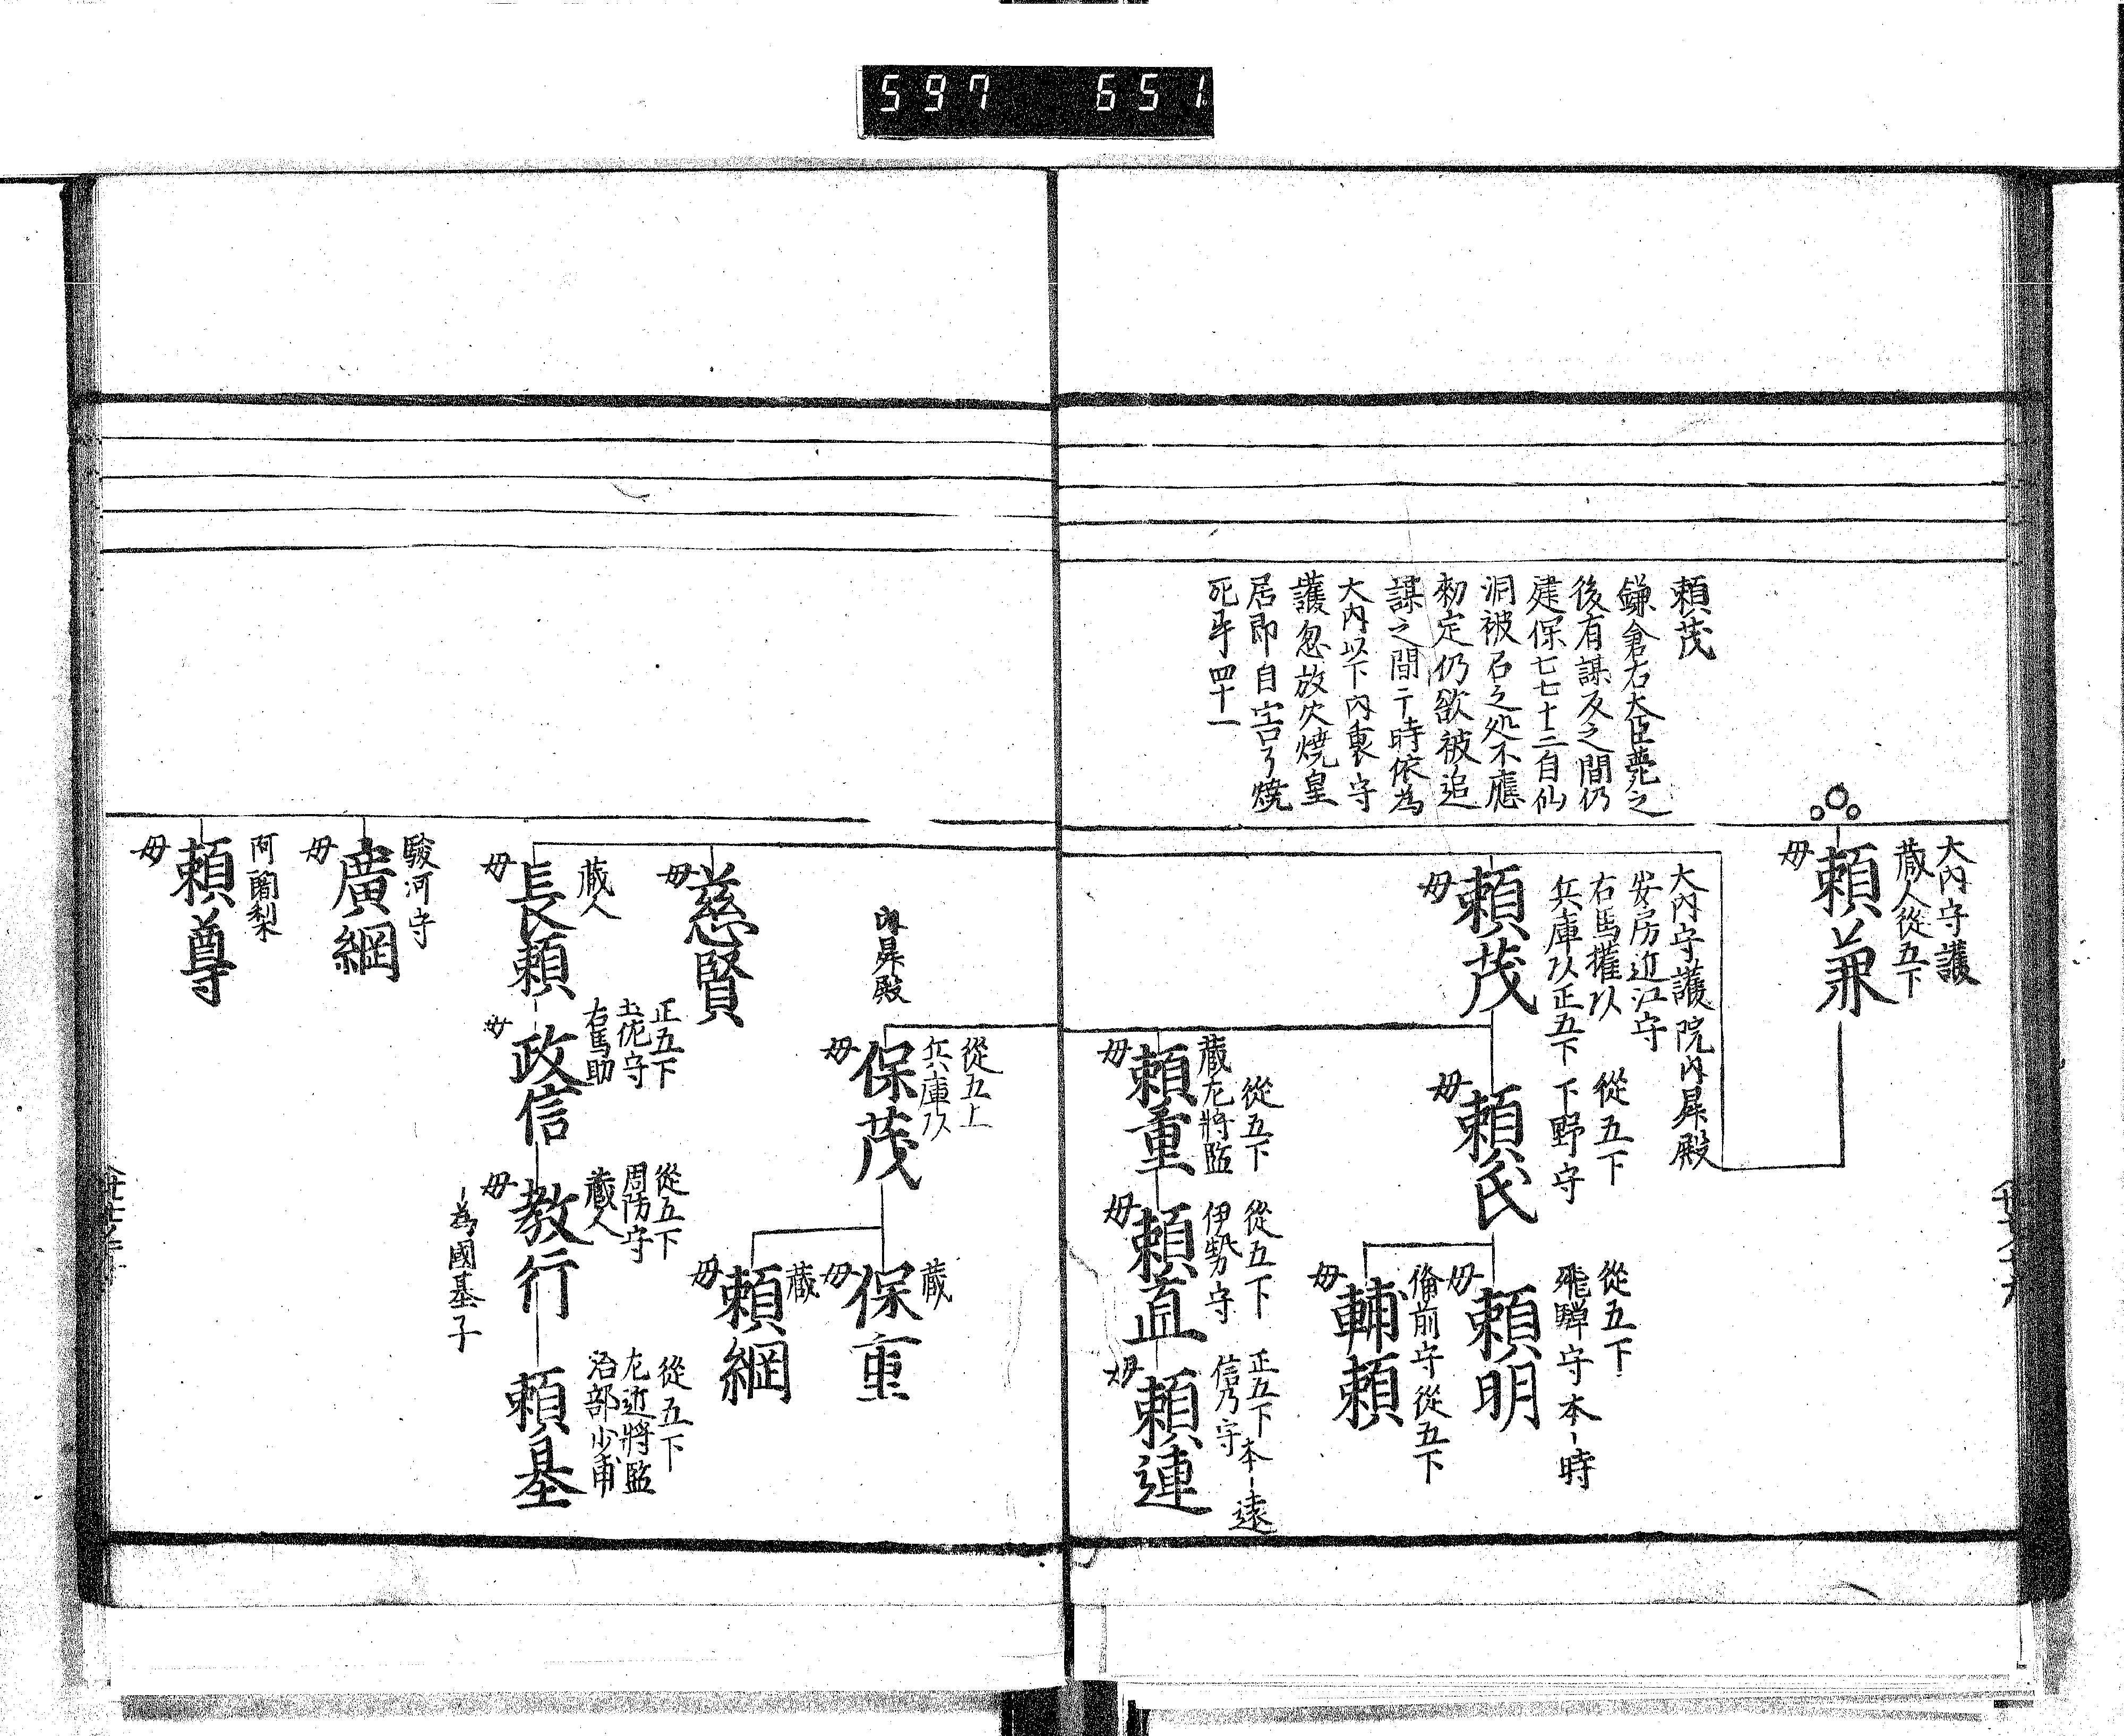 597 651
大内守護
蔵人從五下
頼兼
母
頼茂
鎌倉右大臣薨之
後有謀反之間仍
建保七七十三自仙
洞被召之処不應
勅定仍欲被追
謀之間于時依為
大内以下内裏守
護忽放火焼皇
居即自害了焼
死年四十一
大内守護院内昇殿
安房近江守
右馬權以
兵庫以正五下
頼茂
母
從五下
下野守
頼氏
母
從五下
飛騨守本-時
頼明
母
備前守從五下
輔頼
母
從五下
蔵左將監
頼重
母
從五下
伊勢守
頼直
母
正五下本-遠
信乃守
頼連
母
内昇殿
從五上
兵庫以
保茂
母
蔵
保重
母
蔵
頼綱
母
慈賢
母
蔵人
長頼
母
正五下
土佐守
右馬助
政信
母
從五下
周防守
蔵人
教行
母
-為國基子
從五下
左近將監
治部少甫
頼基
駿河守
廣綱
母
阿闍梨
頼尊
母